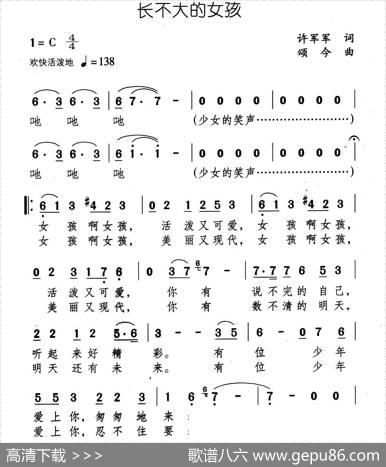 长不大的女孩
1=C 4/4
许军军 词
欢快活泼地 ♩=138
颂 今 曲
6·3 6·3 | 6 7· 7 - | 0 0 0 0 | 0 0 0 0 |
吔 吔 吔 (少女的笑声………………)
6·3 6·3 | 6 i· i - | 0 0 0 0 | 0 0 0 0 |
吔 吔 吔 (少女的笑声………………)
6 1 3 #4 2 3 | 0 1 2 1 2 3 | 6 1 3 #4 2 3 |
女 孩 啊女孩, 活 泼又可爱, 女 孩 啊女孩,
女 孩 啊女孩, 美 丽又现代, 女 孩 啊女孩,
0 2 3 1 7 6 | 0 3 7 6 7 - | 7·7 7 6 5 6 |
活 泼又可爱, 你 有 说不完的自己,
美 丽又现代, 你 有 数不清的明天,
2 2 1 2 2 5·6 | 3 - - 3 5 | 6 - 0 7 6 |
听 起 来好 精 彩。 有 位 少年
明 天 还有 未 来。 有 位 少年
5 5 3 2 2 2 3 | 6 7 - - - |
爱上你, 匆匆 地 来;
爱上你, 忍不 住 要;
高清下载 >>> 歌谱八六 www.gepu86.com